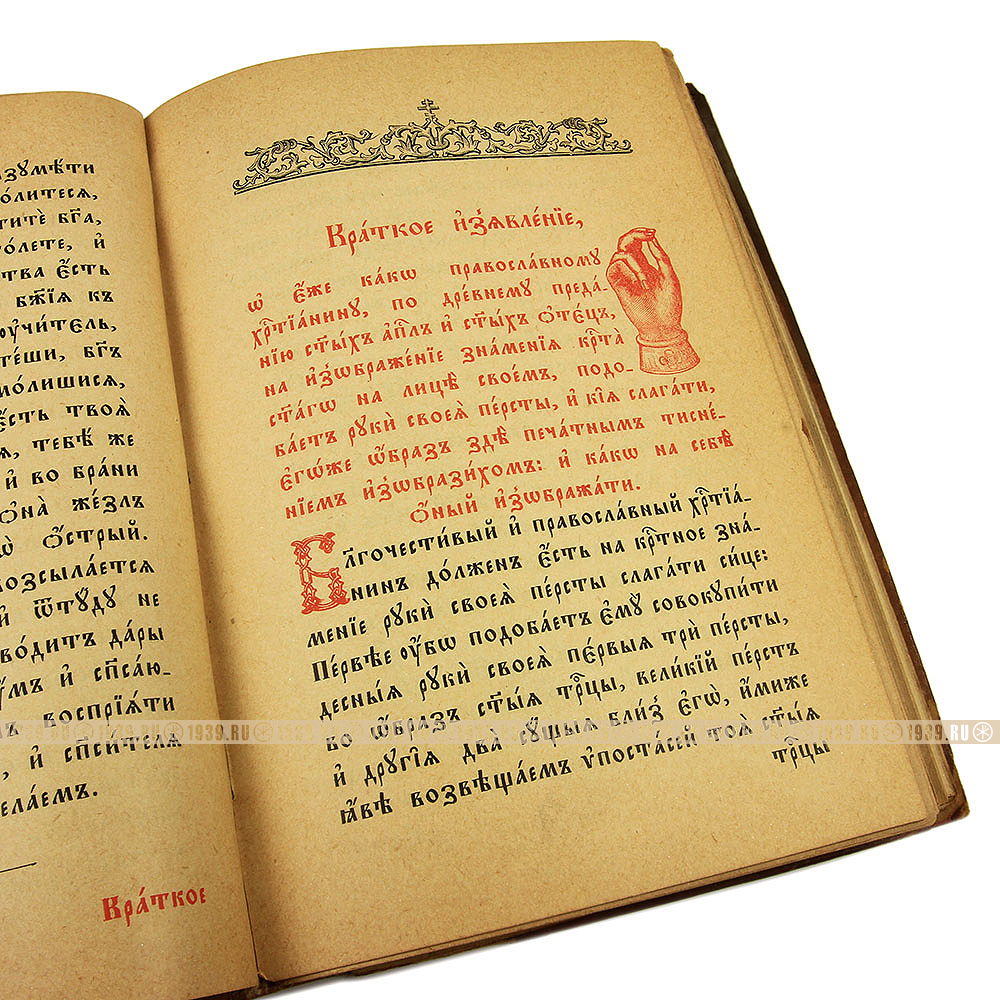 зꙋмѣ́ти
о́литесѧ,
титѐ бг҃а,
о́лете, и҆
тва є҆́сть
бж҃їѧ къ
оу҆чи́тель,
те́ши, бг҃ъ
мо́лишисѧ,
є҆́сть твоѧ̀
ѧ, тебѣ́ же
и҆ во бра́ни
ѻ҆на̀ же́злъ
ѡ ѻ҆́стрый.
возсыла́етсѧ
и҆ ѿтꙋ́дꙋ не
во́дитъ да́ры
ꙋ́мъ и҆ сп҃са́ю-
ъ воспрїѧ́ти
, и҆ сп҃си́телѧ
ела́емъ.
Кра́ткое
Кра́ткое и҆з̾ѧвле́нїе,
ѡ҆ є҆́же ка́кѡ правосла́вномꙋ
хрⷭ҇тїа́нинꙋ, по дре́внемꙋ преда́-
нїю ст҃ы́хъ а҆пⷭ҇лъ и҆ ст҃ы́хъ ѻ҆те́цъ,
на и҆з̾ѡбраже́нїе зна́менїѧ крⷭ҇та̀
ст҃а́гѡ на лицѣ̀ свое́мъ, подо-
ба́етъ рꙋкѝ своеѧ̀ пе́рсты, и҆ кі̑ѧ слага́ти,
є҆гѡ́же ѡ҆́бразъ здѣ̀ печа́тнымъ тисне́-
нїемъ и҆з̾ѡбрази́хомъ: и҆ ка́кѡ на себѣ̀
ѻ҆́ный и҆з̾ѡбража́ти.
Бл҃гочести́вый и҆ правосла́вный хрⷭ҇тїа́-
нинъ до́лженъ є҆́сть на крⷭ҇тное зна́-
менїе рꙋкѝ своеѧ̀ пе́рсты слага́ти си́це:
Пе́рвѣе оу҆́бѡ подоба́етъ є҆мꙋ̀ совокꙋпи́ти
десны́ѧ рꙋкѝ своеѧ̀ пе́рвыѧ трѝ пе́рсты,
во ѡ҆́бразъ ст҃ы́ѧ трⷪ҇цы, вели́кїй пе́рстъ
и҆ дрꙋгі̑ѧ два̀ сꙋ́щыѧ бли́з̾ є҆гѡ̀, и҆́миже
ꙗ҆́вѣ возвѣща́емъ ѵ҆поста́сей тоѧ̀ ст҃ы́ѧ
трⷪ҇цы
1939.RU 1939.RU 1939.RU 1939.RU